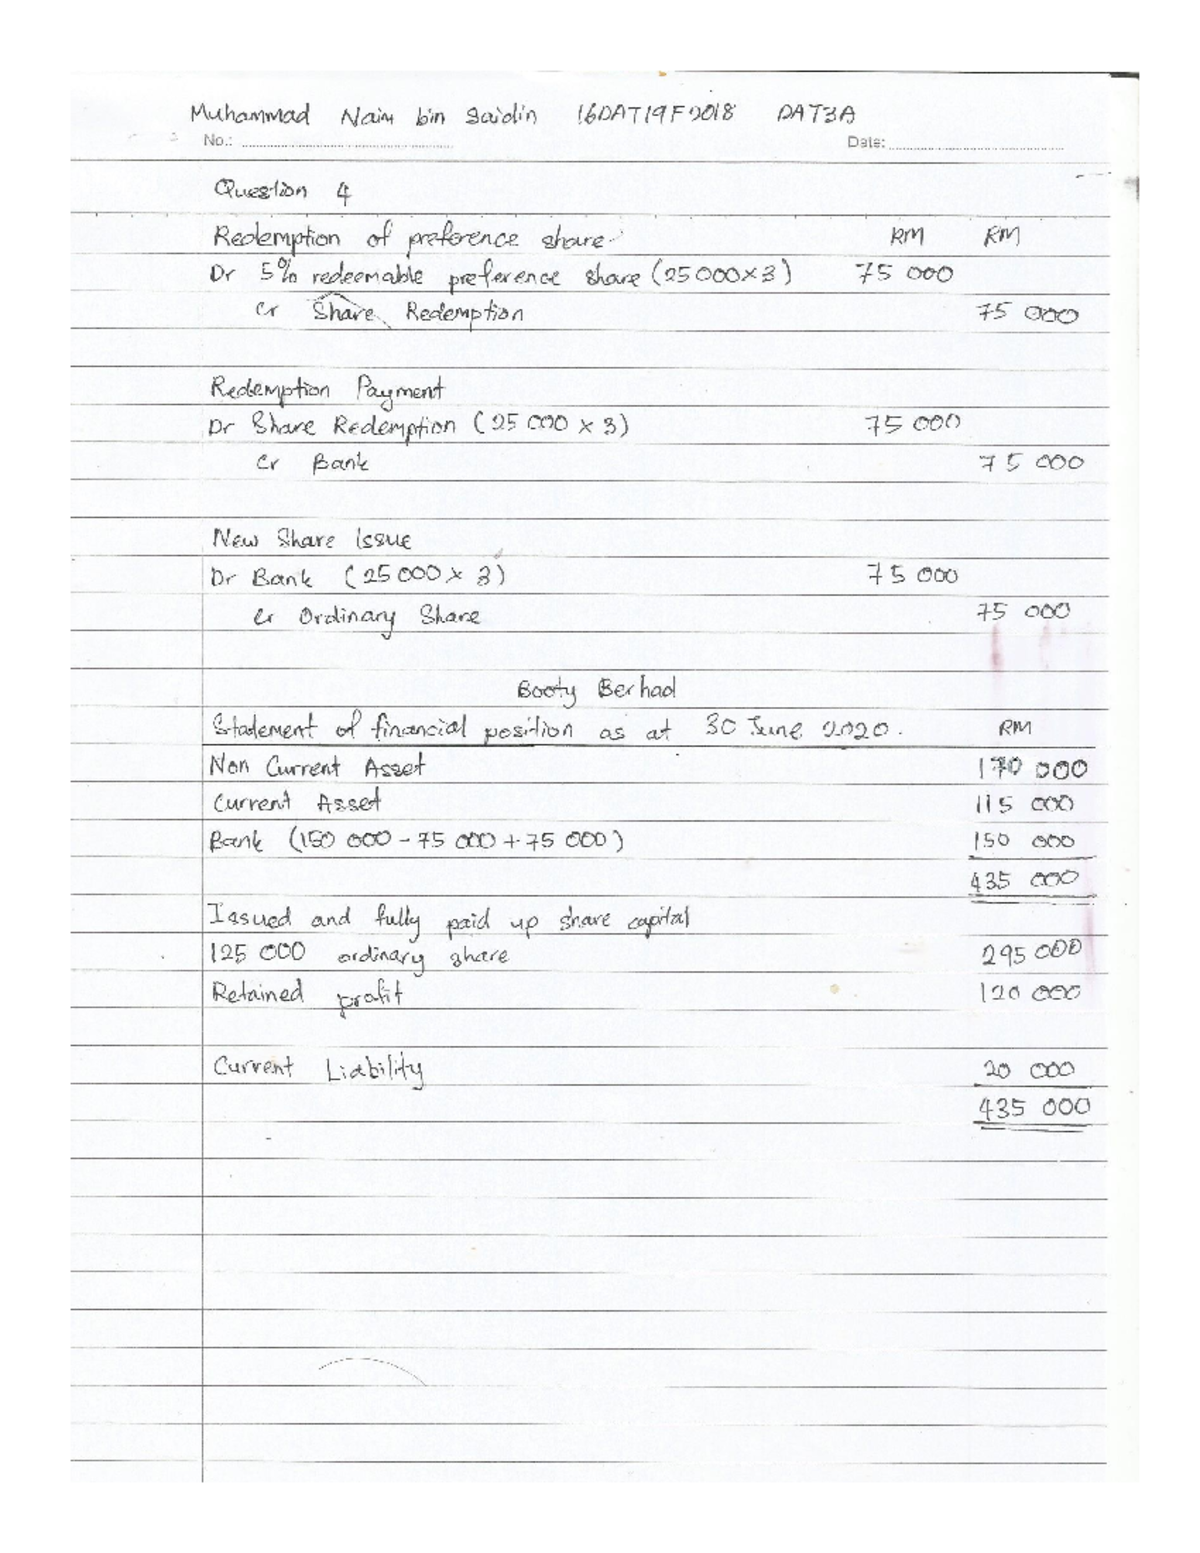 Muhammad Naim bin Saidin 16DAT19F2018 DAT3A
No.: Date:
Question 4
Redemption of preference share RM RM
Dr 5% redeemable preference share (25000×3) 75 000
Cr Share Redemption 75 000
Redemption Payment
Dr Share Redemption (25 000 × 3) 75 000
Cr Bank 75 000
New Share Issue
Dr Bank (25 000 × 3) 75 000
Cr Ordinary Share 75 000
Booty Berhad
Statement of financial position as at 30 June 2020. RM
Non Current Asset 170 000
Current Asset 115 000
Bank (150 000 - 75 000 + 75 000) 150 000
435 000
Issued and fully paid up share capital
125 000 ordinary share 295 000
Retained profit 120 000
Current Liability 20 000
435 000